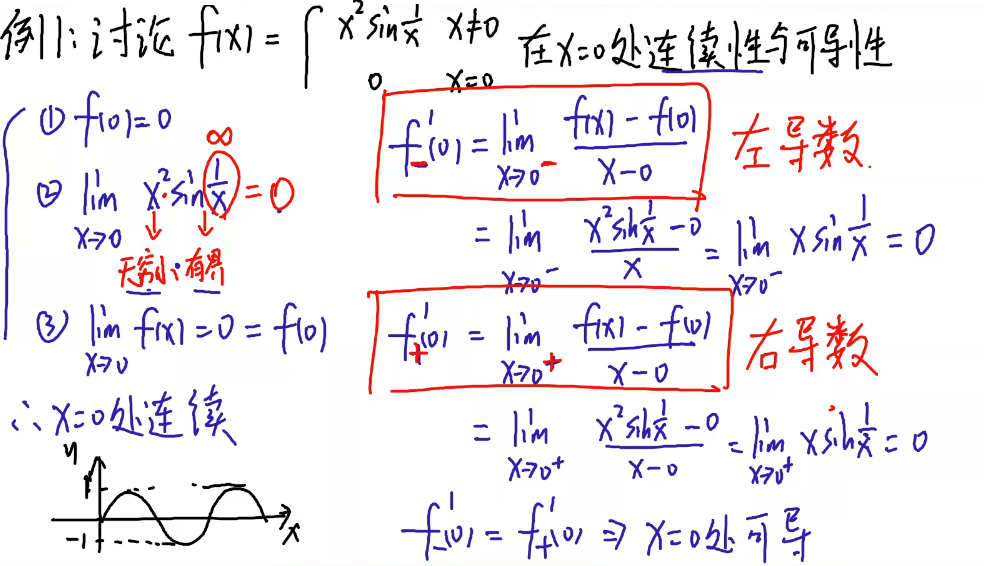 例1: 讨论 f(x) = { x² sin 1/x  x≠0
0  x=0
在x=0处连续性与可导性
① f(0)=0
∞
② lim x→0 x²·sin 1/x = 0
无穷小·有界
③ lim x→0 f(x) = 0 = f(0)
∴ x=0处连续
y
1
-1
x
f'₋(0) = lim x→0⁻ (f(x) - f(0))/(x-0) 左导数.
= lim x→0⁻ (x² sin 1/x - 0)/x = lim x→0⁻ x sin 1/x = 0
f'₊(0) = lim x→0⁺ (f(x) - f(0))/(x-0) 右导数
= lim x→0⁺ (x² sin 1/x - 0)/(x-0) = lim x→0⁺ x sin 1/x = 0
f'₋(0) = f'₊(0) ⇒ x=0处可导